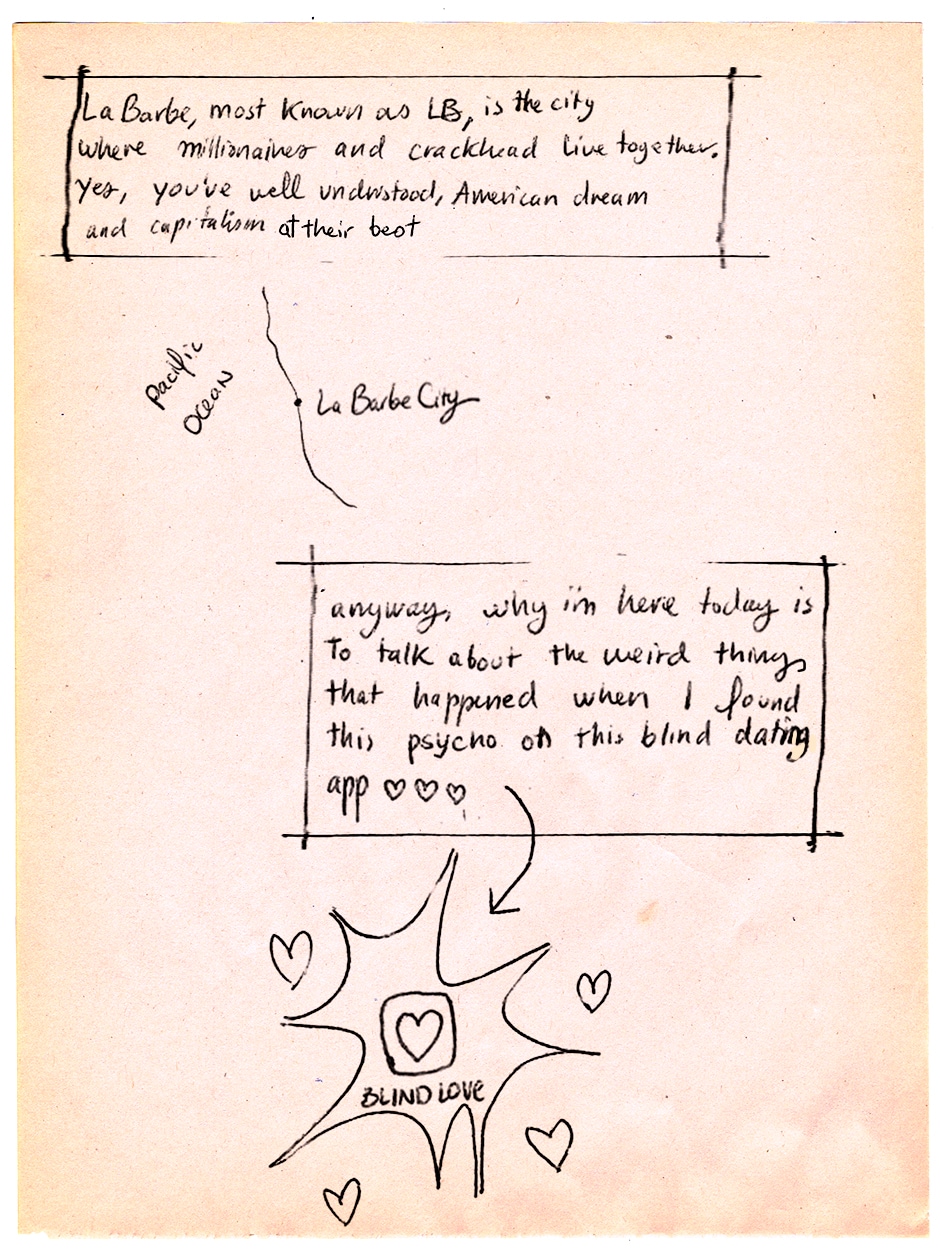 La Barbe, most known as LB, is the city
where millionaires and crackhead live together.
Yes, you've well understood, American dream
and capitalism at their best
Pacific
Ocean
La Barbe City
anyway, why i'm here today is
To talk about the weird things
that happened when I found
this psycho on this blind dating
app ♡♡♡
BLIND LOVE